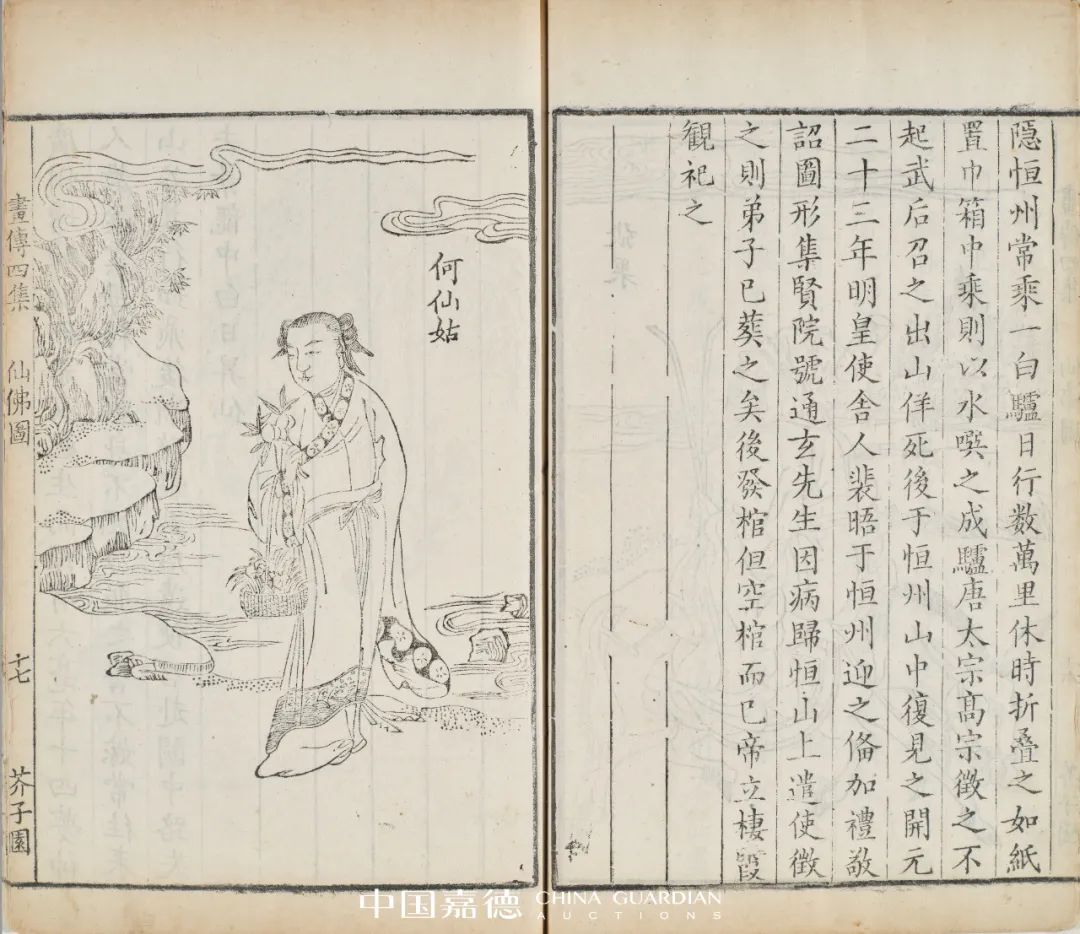 隱恒州常乘一白驢日行数萬里休時折疊之如紙
置巾箱中乘則以水噀之成驢唐太宗高宗徵之不
起武后召之出山佯死後于恒州山中復見之開元
二十三年明皇使舍人裴晤于恒州迎之備加禮敬
詔圖形集賢院號通玄先生因病歸恒山上遣使徵
之則弟子已葬之矣後發棺但空棺而已帝立棲霞
觀祀之
何仙姑
畫傳四集 仙佛圖 十七 芥子園
中国嘉德 CHINA GUARDIAN
AUCTIONS